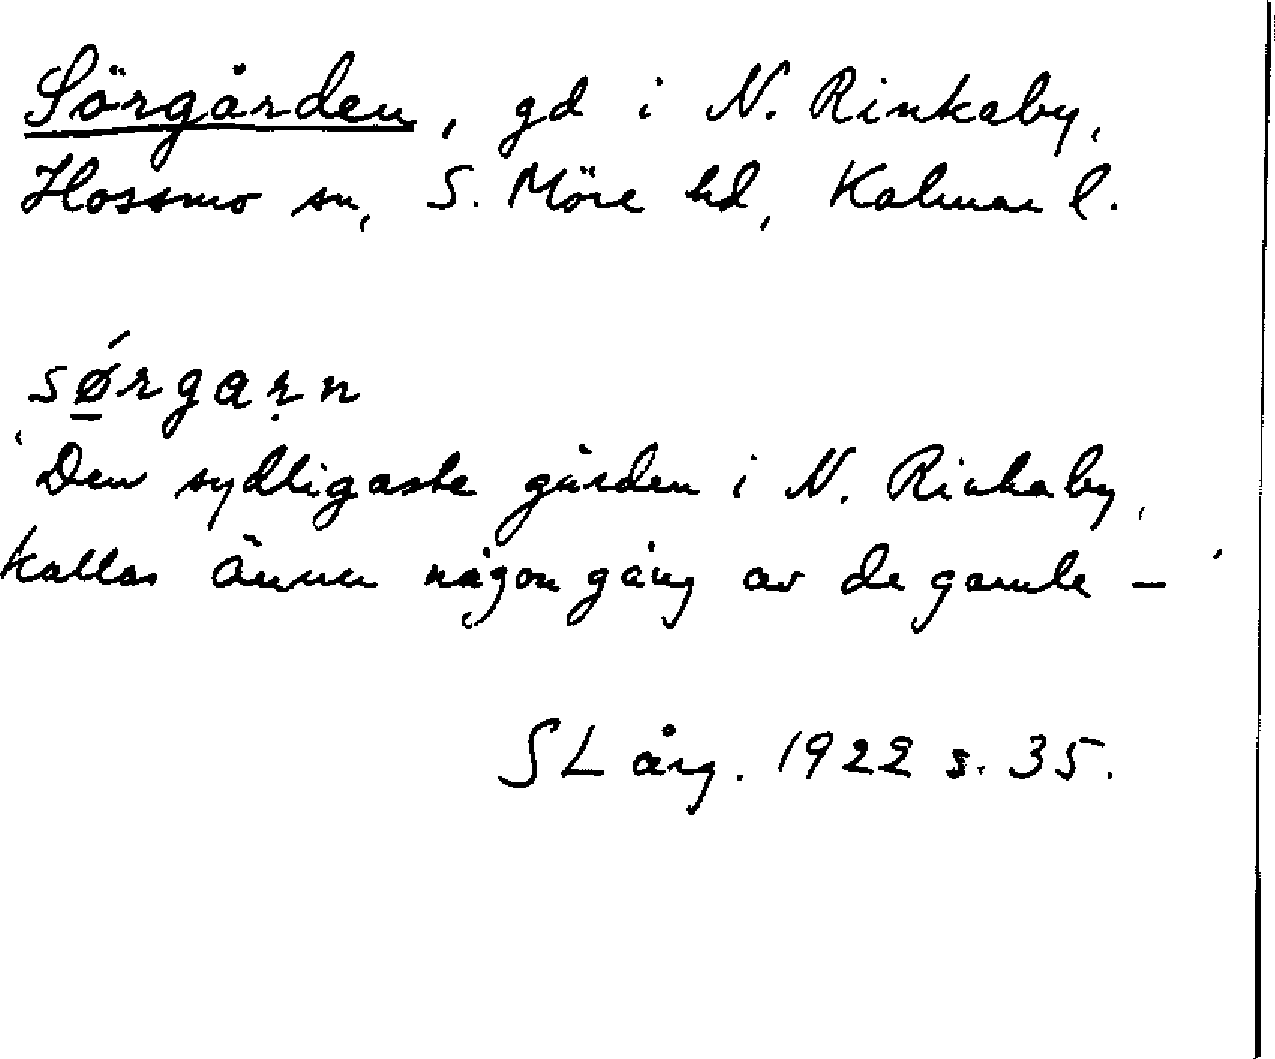 Sörgården, gd i N. Rinkaby,
Hossmo sn, S. Möre hd, Kalmar l.
sǿ̱rgaṛn
'Den sydligaste gården i N. Rinkaby,
kallas ännu någon gång av de gamle –'
SL årg. 1922 s. 35.